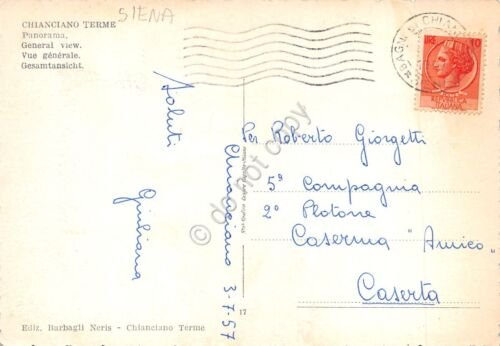 SIENA
CHIANCIANO TERME
Panorama.
General view.
Vue générale.
Gesamtansicht.
LIRE 10
ITALIANA
Saluti
Giuliana
Chianciano 3-7-57
Per Roberto Giorgetti
5ª Compagnia
2º Plotone
Caserma "Amico"
Caserta
17
Ediz. Barbagli Neris - Chianciano Terme
do not copy